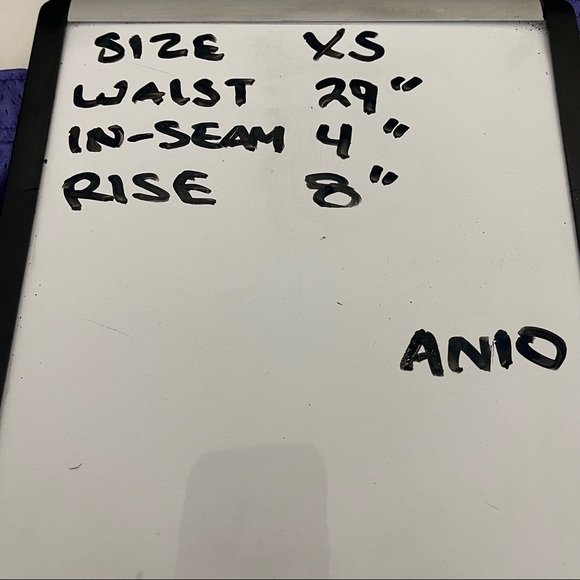 SIZE XS
WAIST 29"
IN-SEAM 4"
RISE 8"
ANIO